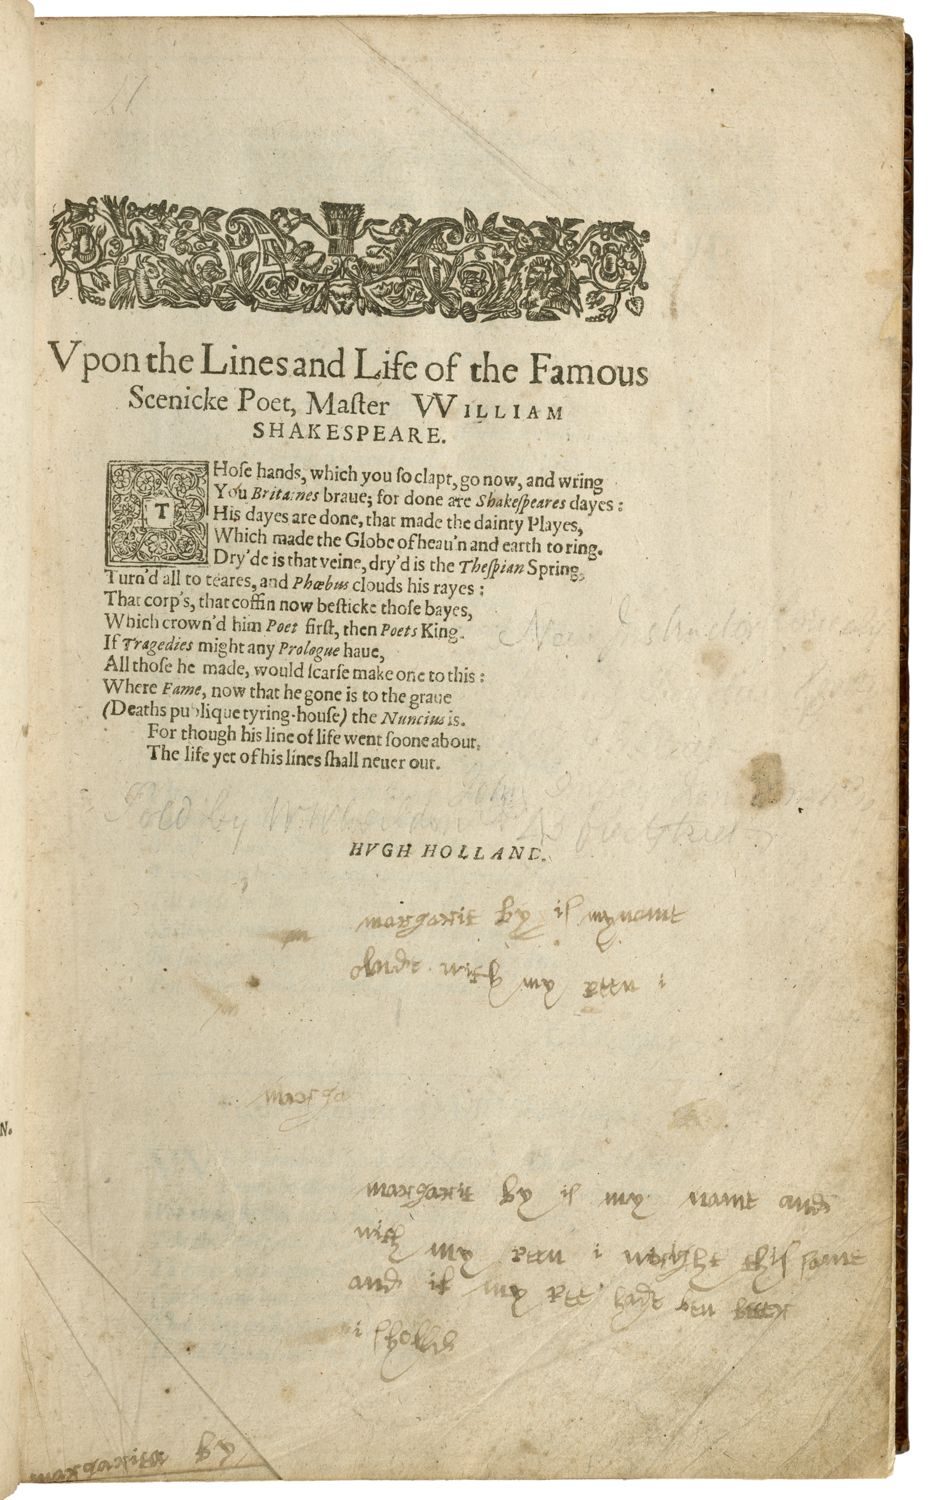 Vpon the Lines and Life of the Famous
Scenicke Poet, Maſter WILLIAM
SHAKESPEARE.
THoſe hands, which you ſo clapt, go now, and wring
You Britaines braue; for done are Shakeſpeares dayes:
His dayes are done, that made the dainty Playes,
Which made the Globe of heau'n and earth to ring.
Dry'de is that veine, dry'd is the Theſpian Spring,
Turn'd all to teares, and Phœbus clouds his rayes:
That corp's, that coffin now beſticke thoſe bayes,
Which crown'd him Poet firſt, then Poets King.
If Tragedies might any Prologue haue,
All thoſe he made, would ſcarſe make one to this:
Where Fame, now that he gone is to the graue
(Deaths publique tyring-houſe) the Nuncius is.
For though his line of life went ſoone about,
The life yet of his lines ſhall neuer out.
HVGH HOLLAND.
margarit by is my name
with my pen i
marga
margarit by is my name and
with my pen i this same
and if my pen hade ben
i
N.
margarita by